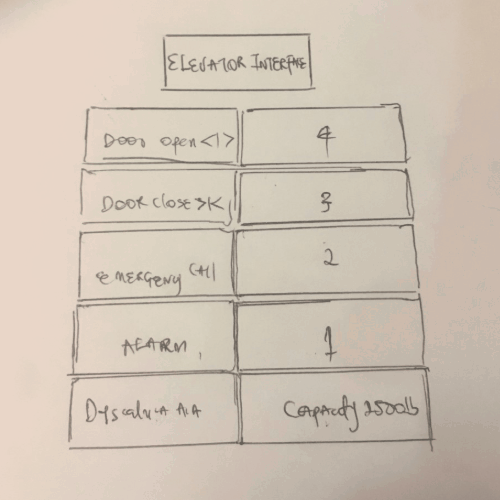 ELEVATOR INTERFACE
Door open <|> 4
DOOR close >K 3
EMERGENCY CALL 2
ALARM 1
Dyscalculia Capacity 2500lb